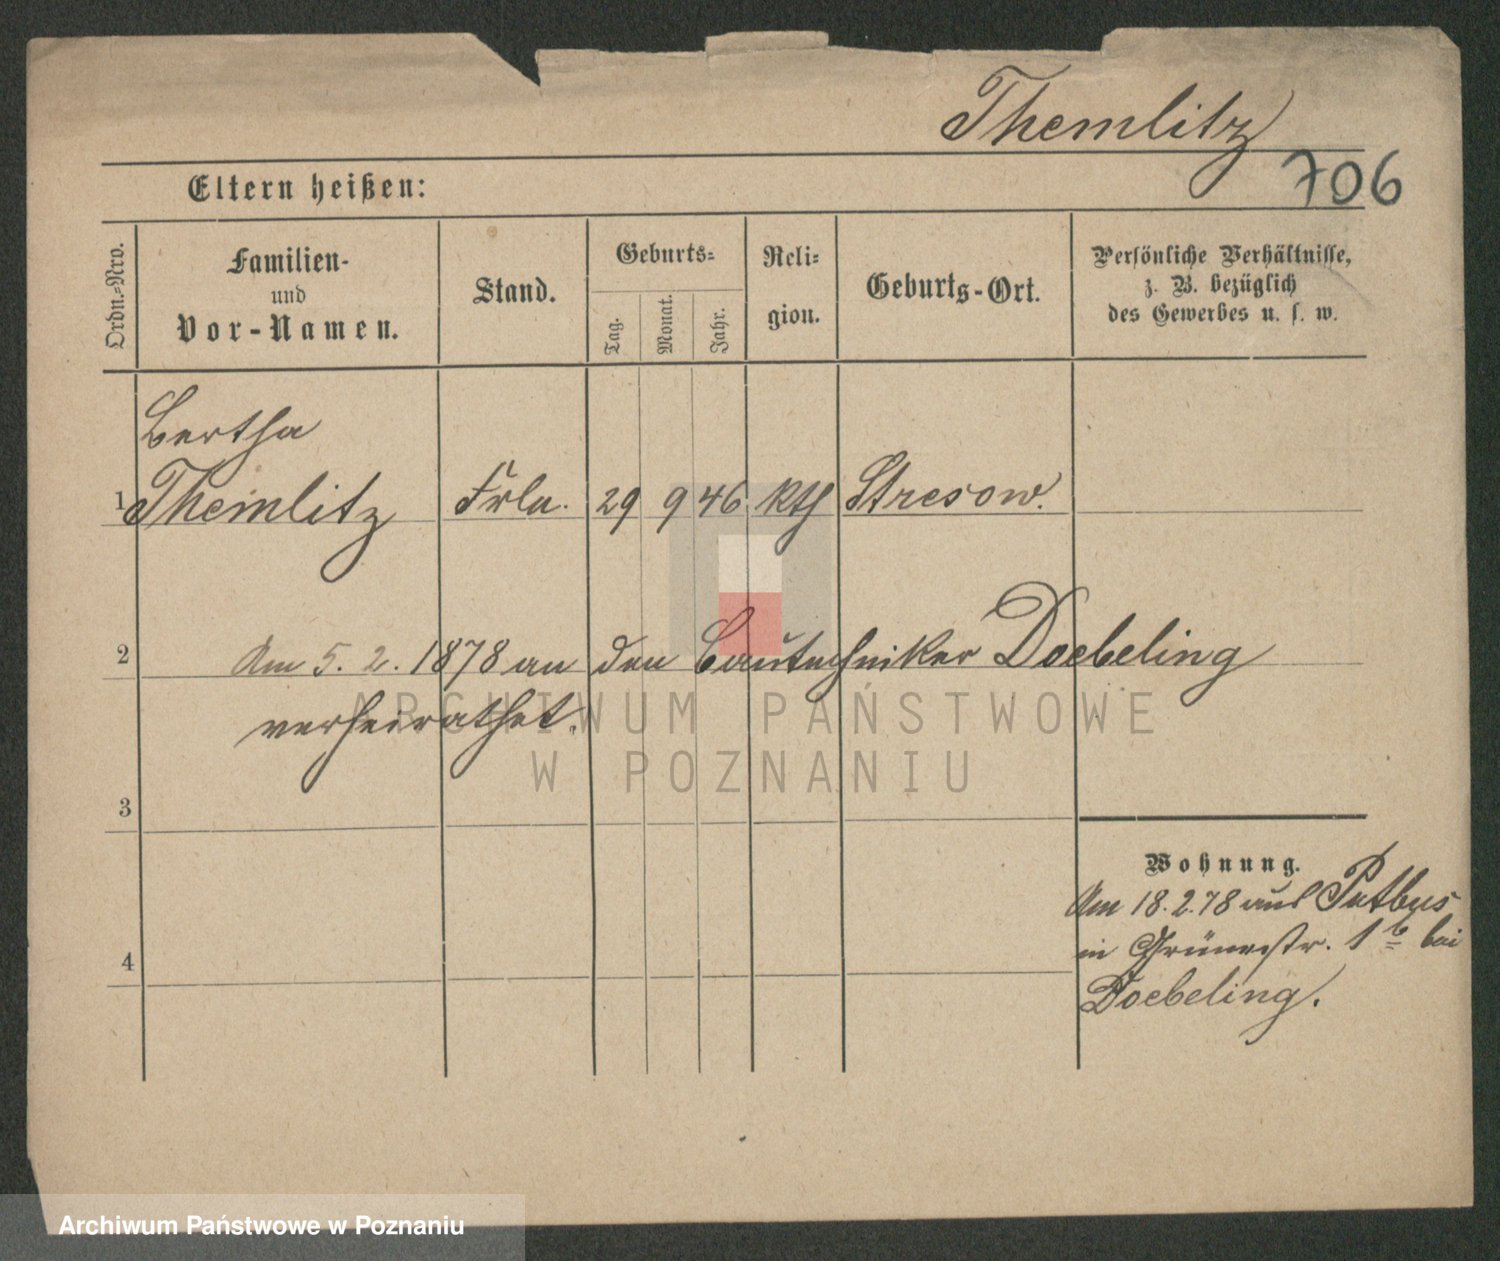 Themlitz
706
Eltern heißen:
Ordn.-Nro.
Familien-
und
Vor-Namen.
Stand.
Geburts-
Tag.
Monat.
Jahr.
Reli-
gion.
Geburts-Ort.
Persönliche Verhältnisse,
z. B. bezüglich
des Gewerbes u. s. w.
Bertha
1 Themlitz Frln. 29 9 46 kth Stresow.
2 Am 5. 2. 1878 an den Bautechniker Doebeling
verheirathet.
ARCHIWUM PAŃSTWOWE
W POZNANIU
3
Wohnung.
Am 18. 2. 78 aus Putbus
in Grünestr. 1 b bei
4
Doebeling.
Archiwum Państwowe w Poznaniu